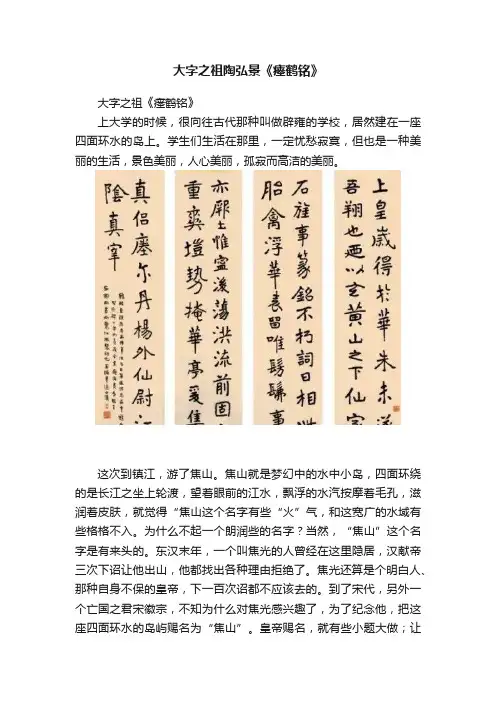 大字之祖陶弘景《瘗鹤铭》
大字之祖《瘗鹤铭》
上大学的时候，很向往古代那种叫做辟雍的学校，居然建在一座
四面环水的岛上。学生们生活在那里，一定忧愁寂寞，但也是一种美
丽的生活，景色美丽，人心美丽，孤寂而高洁的美丽。
上皇歲得於華朱未遂
吾翔也迺以玄黄山之下仙家
石旌事篆銘不朽詞曰相此
胎禽浮華表留唯髣髴事
亦厈土惟寧後蕩洪流前固
重爽塏勢掩華亭爰集
真侣瘞尔丹楊外仙尉江
陰真宰
这次到镇江，游了焦山。焦山就是梦幻中的水中小岛，四面环绕
的是长江之坐上轮渡，望着眼前的江水，飘浮的水汽按摩着毛孔，滋
润着皮肤，就觉得“焦山这个名字有些“火”气，和这宽广的水域有
些格格不入。为什么不起一个朗润些的名字？当然，“焦山”这个名
字是有来头的。东汉末年，一个叫焦光的人曾经在这里隐居，汉献帝
三次下诏让他出山，他都找出各种理由拒绝了。焦光还算是个明白人、
那种自身不保的皇帝，下一百次诏都不应该去的。到了宋代，另外一
个亡国之君宋徽宗，不知为什么对焦光感兴趣了，为了纪念他，把这
座四面环水的岛屿赐名为“焦山”。皇帝赐名，就有些小题大做；让